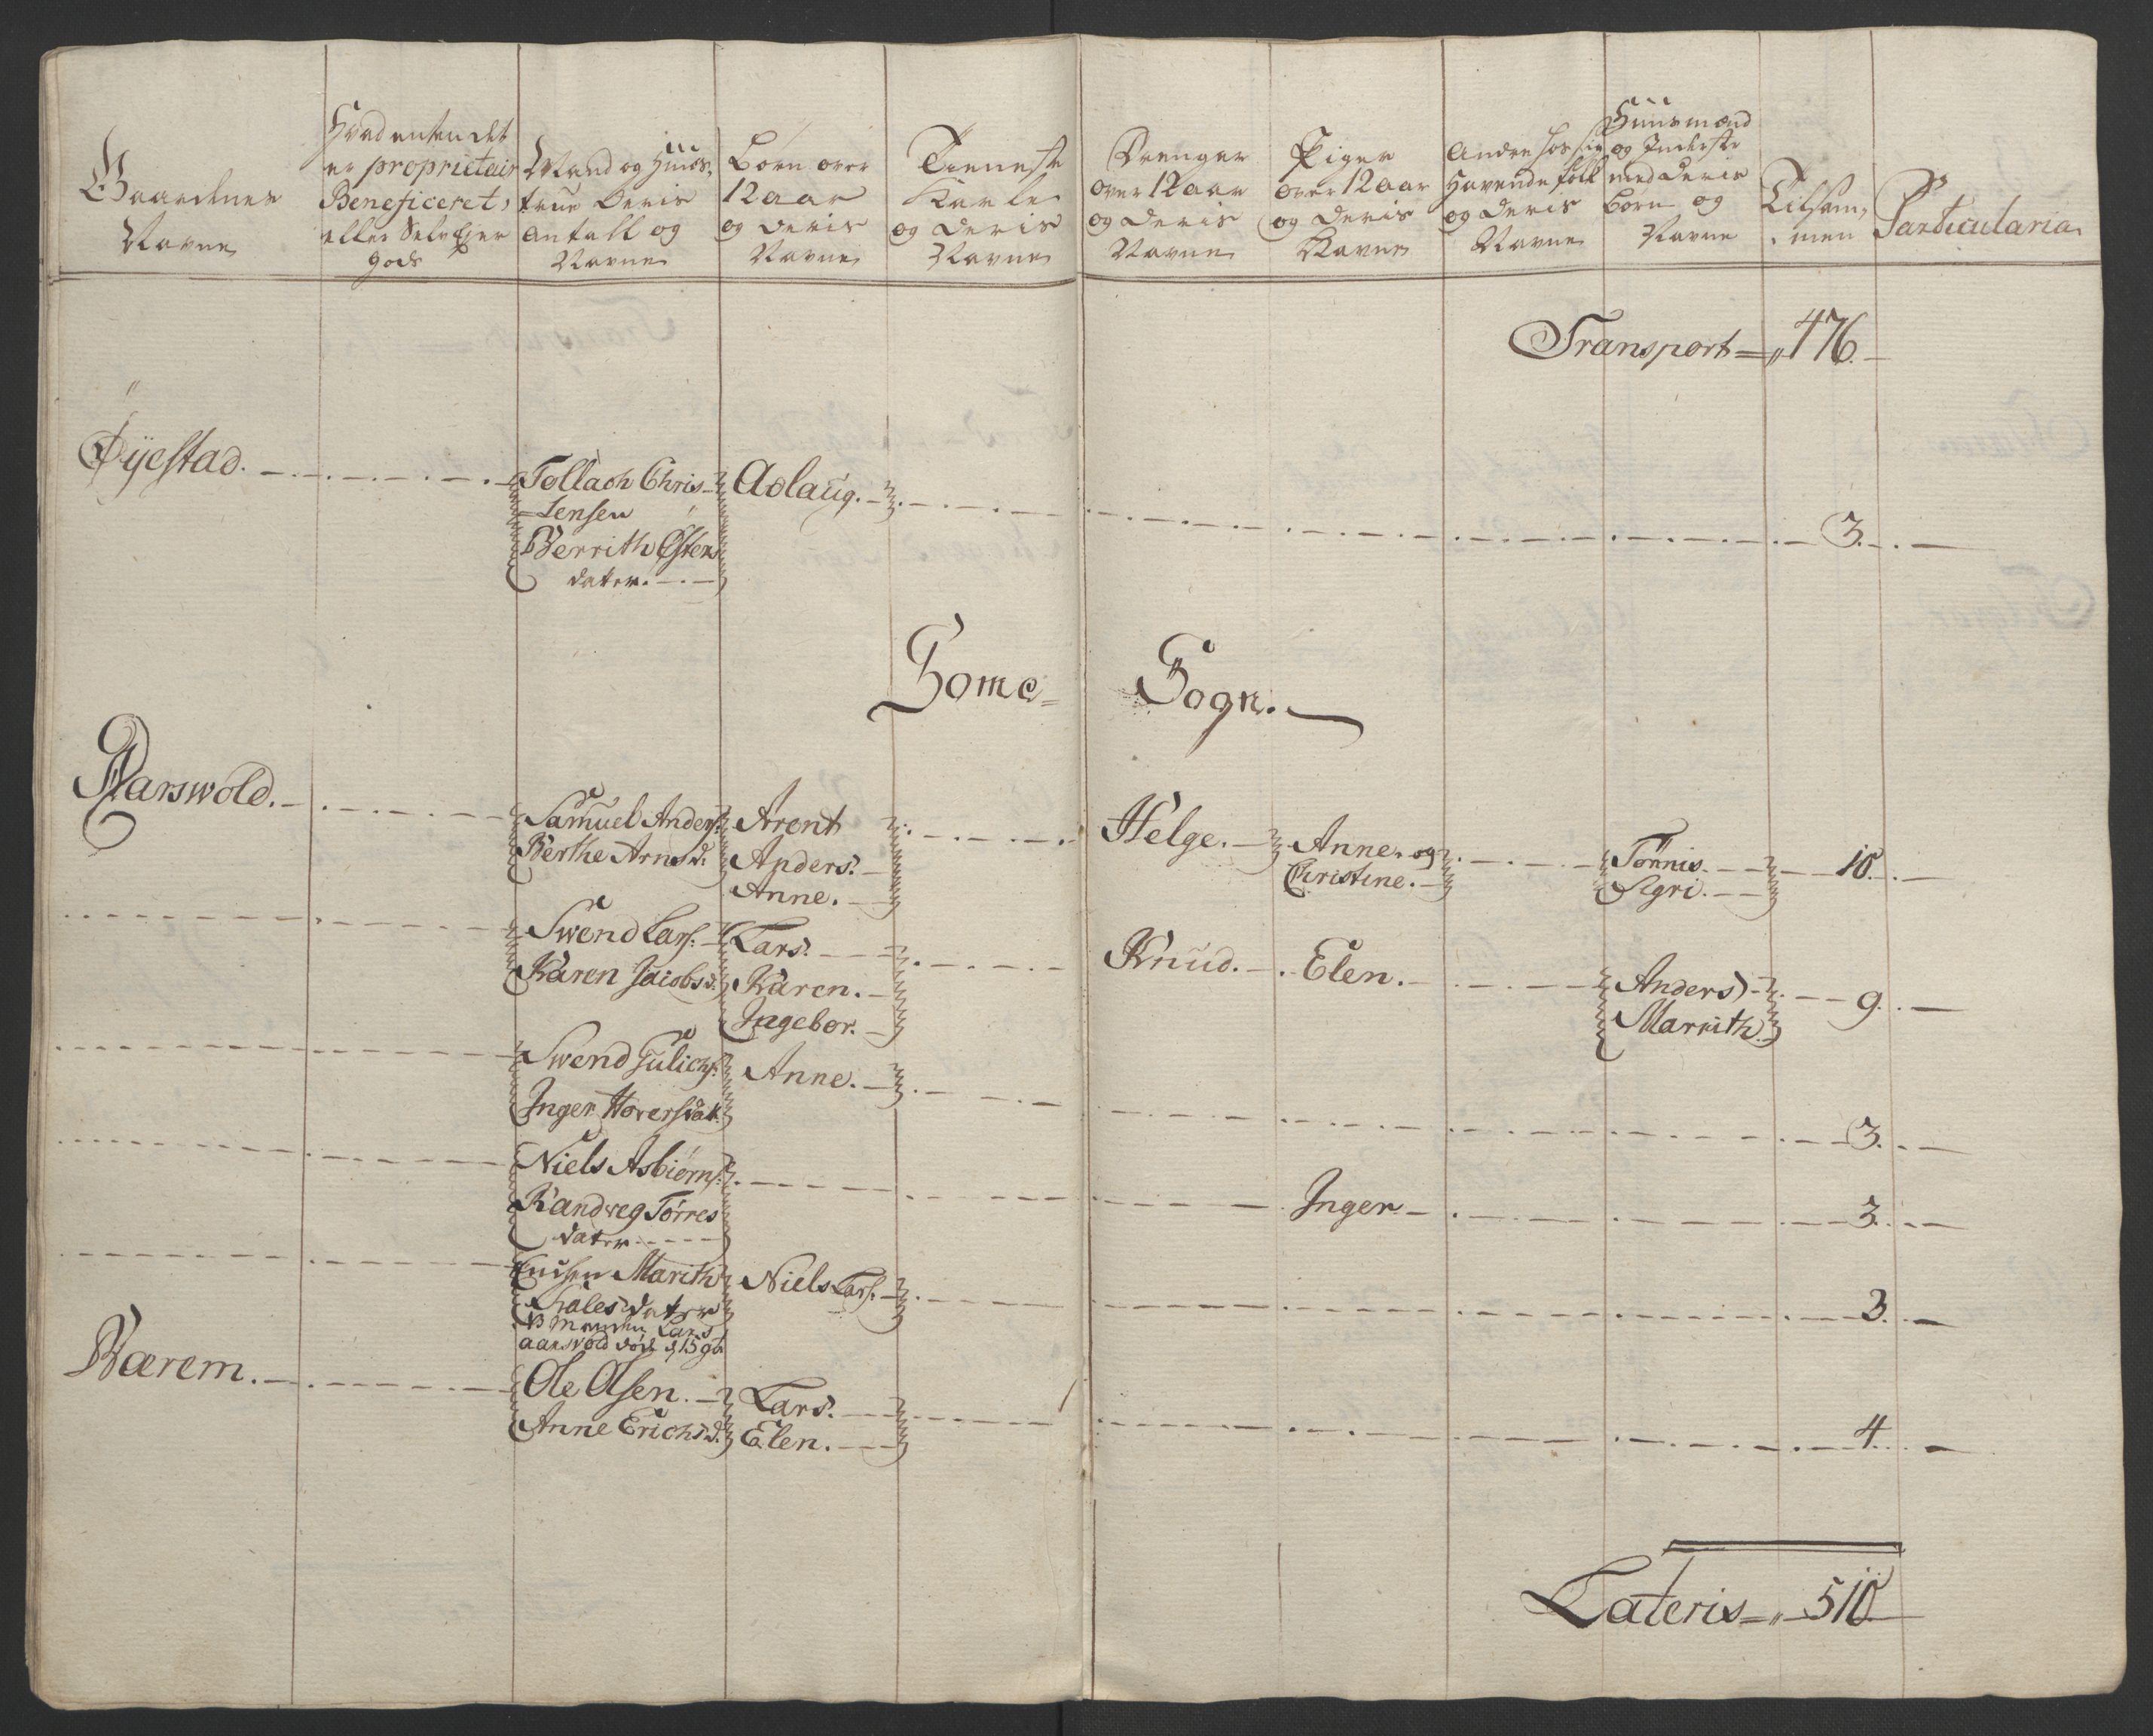 Gaardenes
Navne
Hvad enten det
er proprietair
Beneficeret,
eller Selv Ejer
gods
Mand og Huus-
true Deris
Antall og
Navne
Børn over
12 aar
og deris
Navne
Tieneste
Karle
og Deris
Navne
Drenge
over 12 aar
og deris
Navne
Piger
over 12 aar
og deris
Navne
Andre hos sig
Havende folk
og deris
Navne
Huusmænd
og Inderste
med deris
Børn og
Navne
Tilsam-
men
Particularia
Transport = „ 476.
Øÿestad.
Tollach Chris-
=tensen
Berrith Østens
dater.
Aslaug.
3.
Some=
Sogn.
Aarswold.
Samuel Anders:
Berthe Arnesd:
Arent
Anders.
Anne.
Helge.
Anne. og
Christine.
Tønnis.
Sigri.
10.
Swend Lars:
Karen Jacobsd:
Lars.
Karen.
Ingebor.
Knud.
Elen.
Anders
Marrith.
9.
Swend Gulichs:
Inger Hoversdat:
Anne.
3.
Niels Asbiørns:
Randveg Tørres
dater
Inger
3.
Enchen Marith
dater
Manden Lars
aarsvold død d. 15 9b:
Niels Lars:
3.
Bærem.
Ole Olsen.
Anne Erichsd:
Lars.
Elen.
4.
Lateris = „ 510